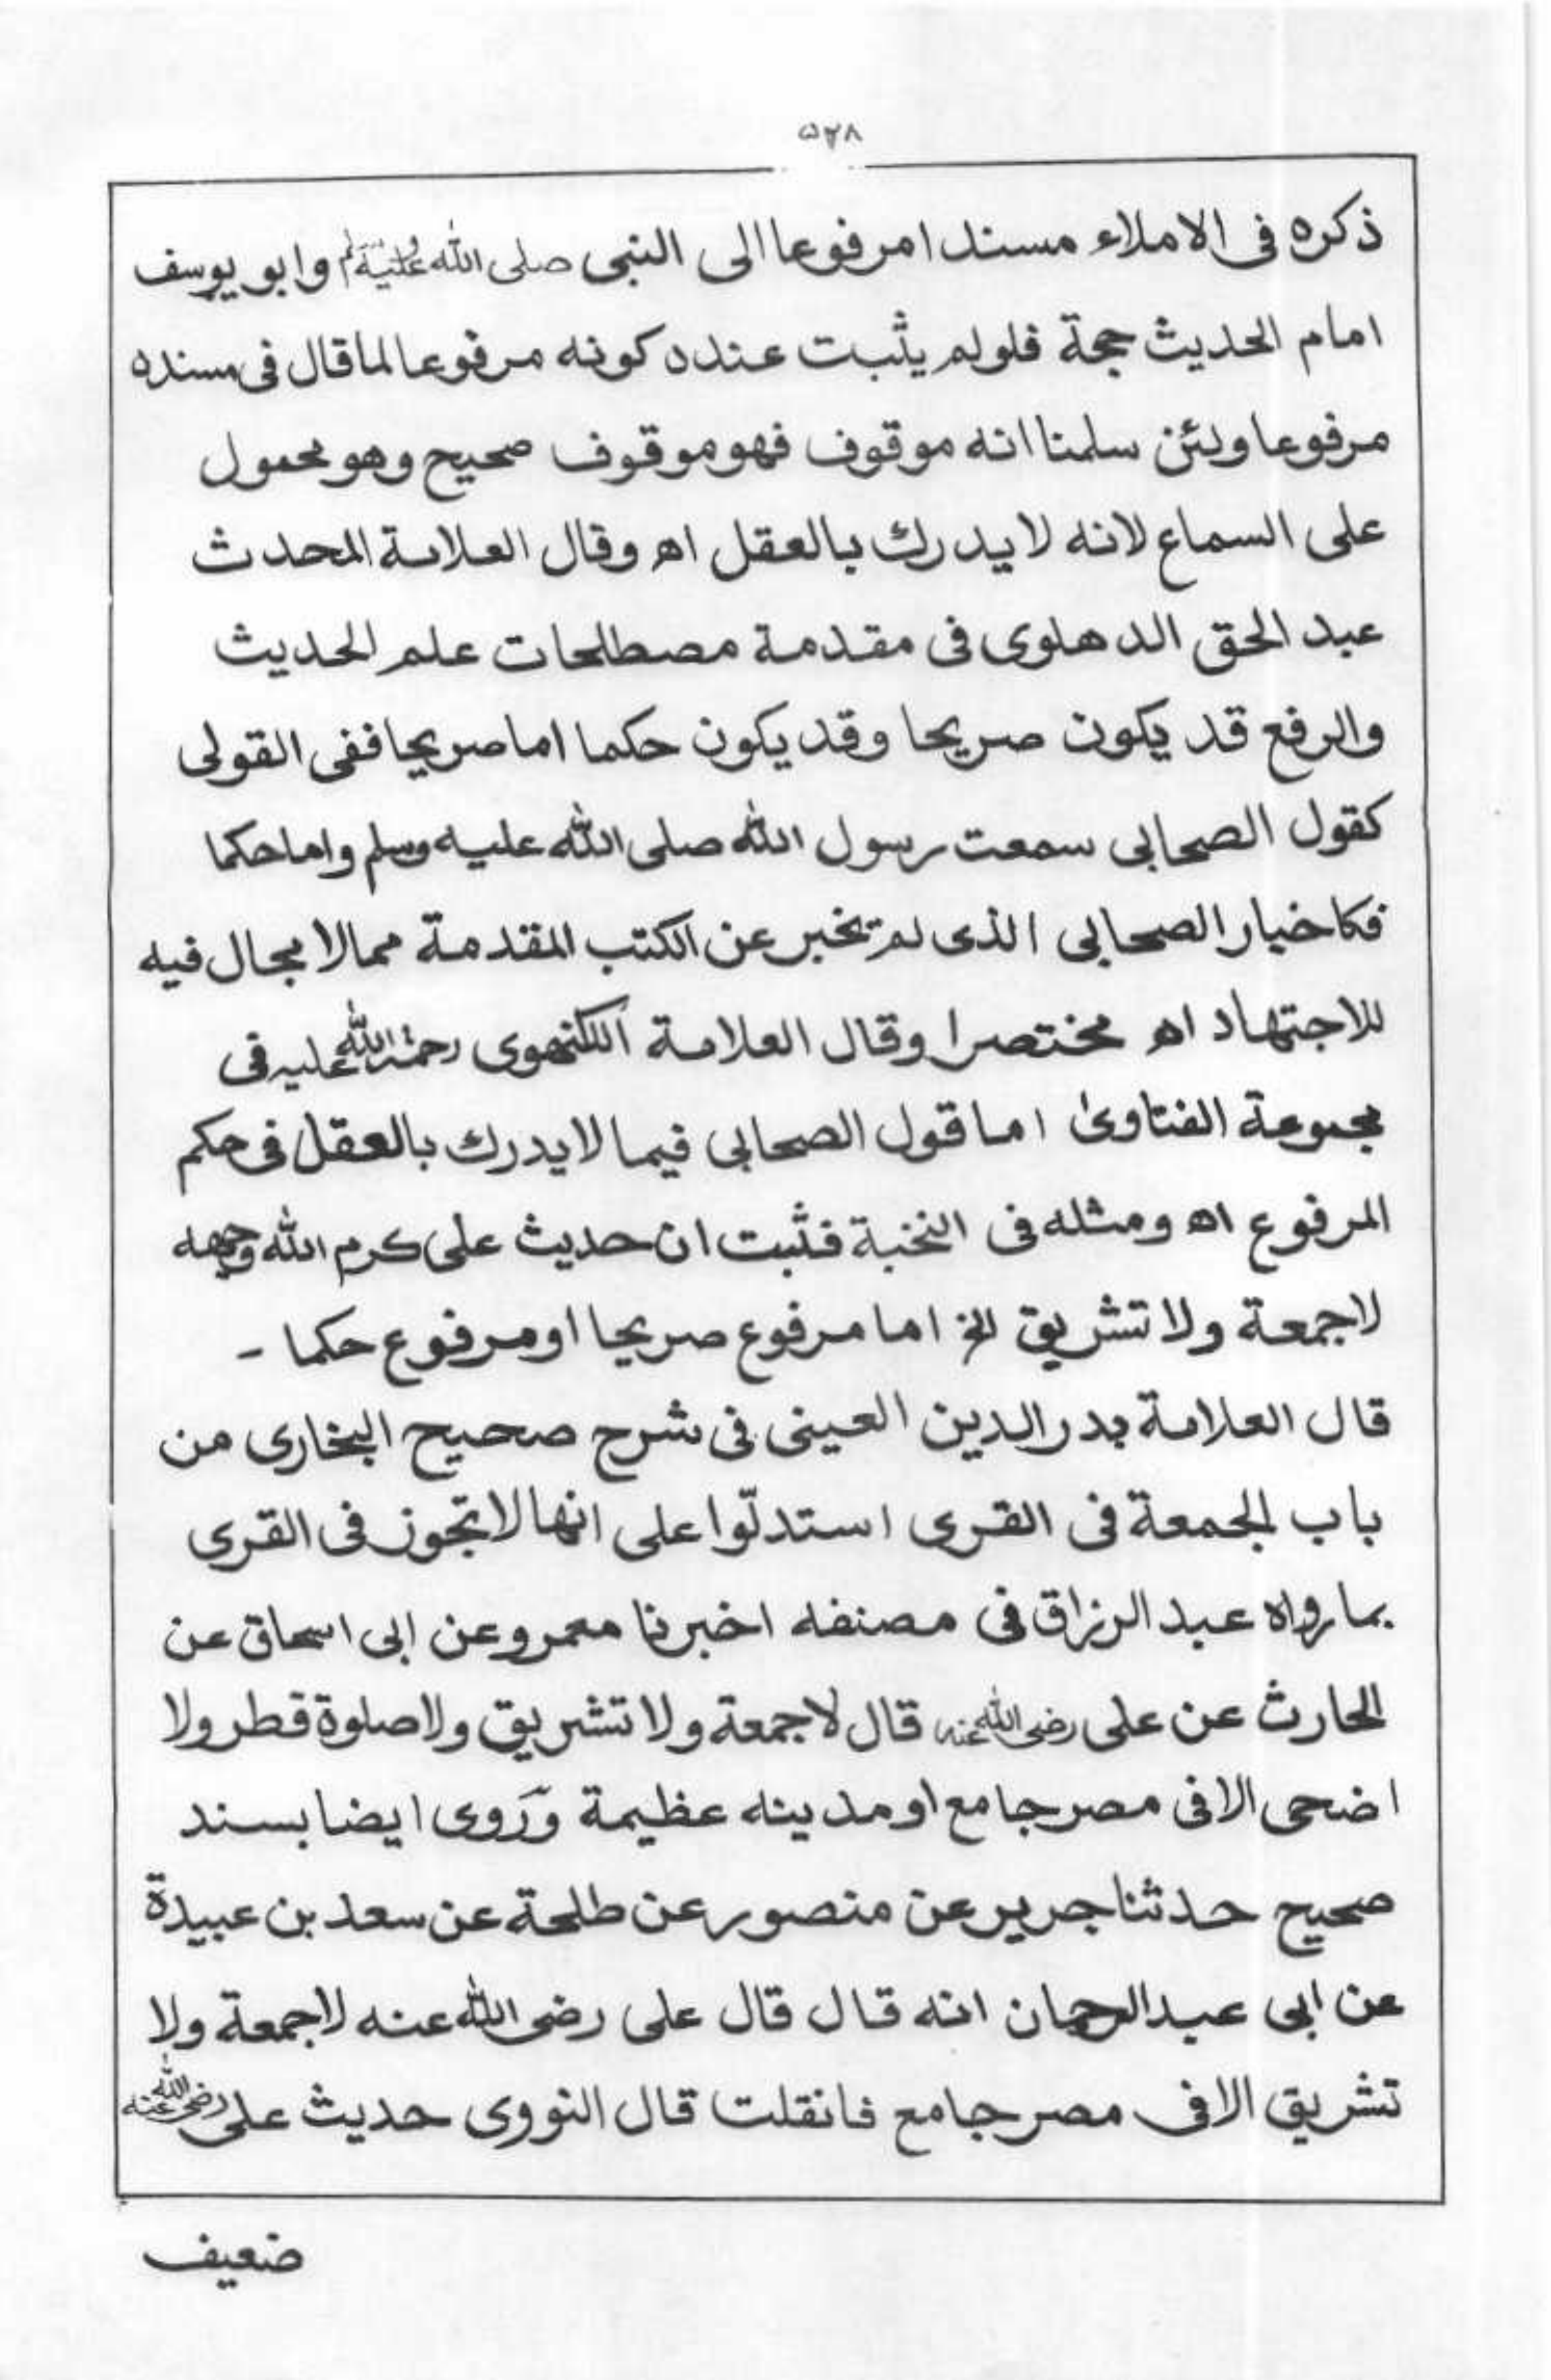 ۵۲۸
ذكره فى الاملاء مسندا مرفوعا الى النبى صلى الله عليه وسلم وابو يوسف
امام الحديث حجة فلولم يثبت عنده كونه مرفوعا لما قال فى مسنده
مرفوعا ولئن سلمنا انه موقوف فهو موقوف صحيح وهو محمول
على السماع لانه لا يدرك بالعقل اه وقال العلامة المحدث
عبد الحق الدهلوى فى مقدمة مصطلحات علم الحديث
والرفع قد يكون صريحا وقد يكون حكما اما صريحا ففى القولى
كقول الصحابى سمعت رسول الله صلى الله عليه وسلم واما حكما
فكاخبار الصحابى الذى لم يخبر عن الكتب المقدمة ممالا مجال فيه
للاجتهاد اه مختصرا وقال العلامة اللكنهوى رحمة الله عليه فى
مجموعة الفتاوىٰ اما قول الصحابى فيما لا يدرك بالعقل فى حكم
المرفوع اه ومثله فى النخبة فثبت ان حديث على كرم الله وجهه
لاجمعة ولا تشريق الخ اما مرفوع صريحا او مرفوع حكما -
قال العلامة بدر الدين العينى فى شرح صحيح البخارى من
باب الجمعة فى القرى استدلّوا على انها لا تجوز فى القرى
بما رواه عبد الرزاق فى مصنفه اخبرنا معمر وعن ابى اسحاق عن
الحارث عن على رضى الله عنه قال لاجمعة ولا تشريق ولا صلوة فطر ولا
اضحى الا فى مصر جامع او مدينه عظيمة وَرَوى ايضا بسند
صحيح حدثنا جرير عن منصور عن طلحة عن سعد بن عبيدة
عن ابى عبد الرحمان انه قال قال على رضى الله عنه لاجمعة ولا
تشريق الا فى مصر جامع فانقلت قال النووى حديث على رضى الله عنه
ضعيف